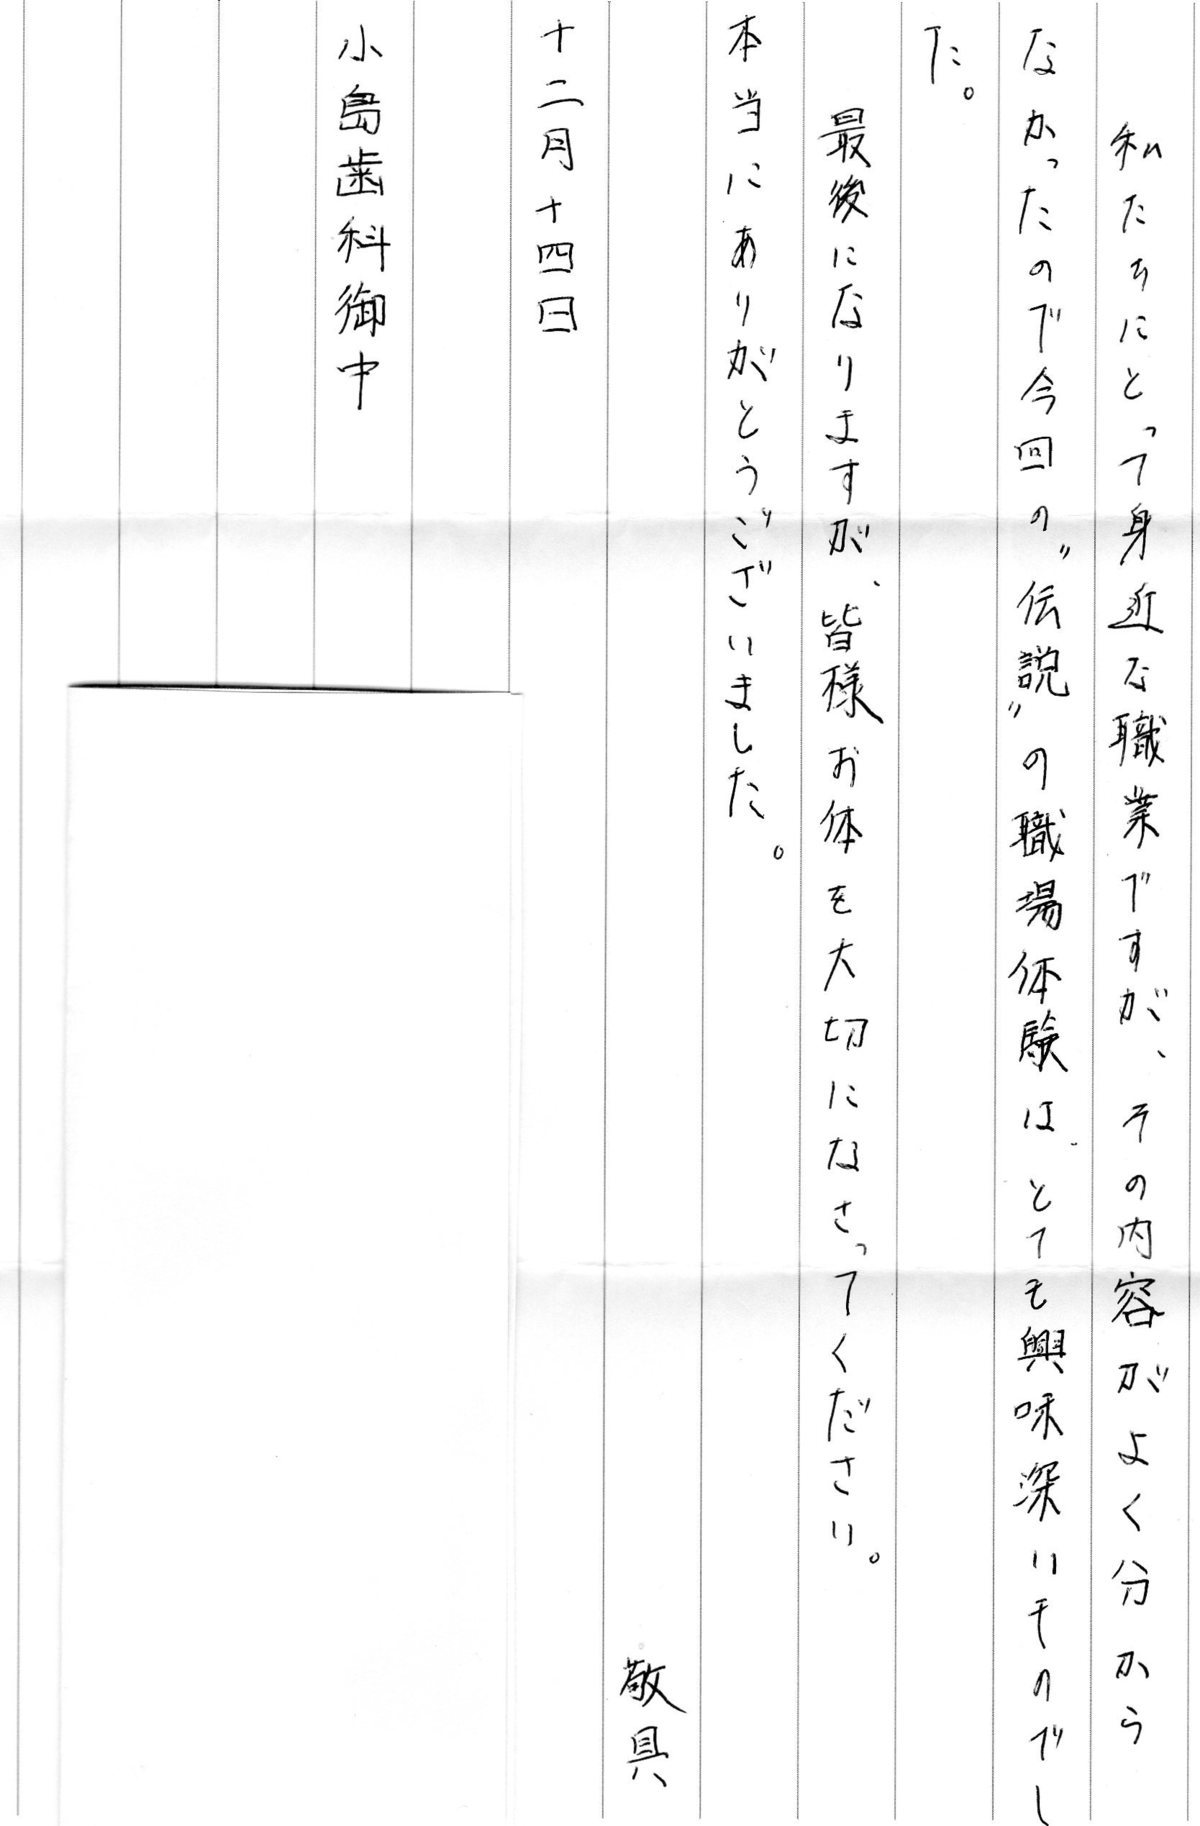 私たちにとって身近な職業ですが、その内容がよく分から
なかったので今回の"伝説"の職場体験は、とても興味深いものでし
た。
最後になりますが、皆様お体を大切になさってください。
本当にありがとうございました。
敬具
十二月十四日
小島歯科御中